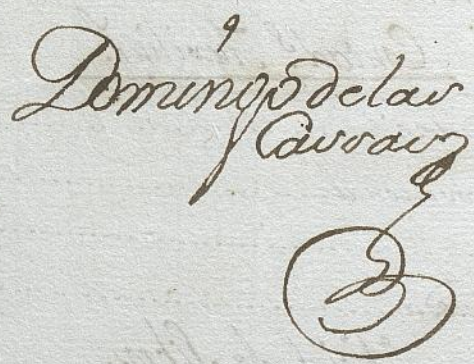 Domingo de las
Cassas